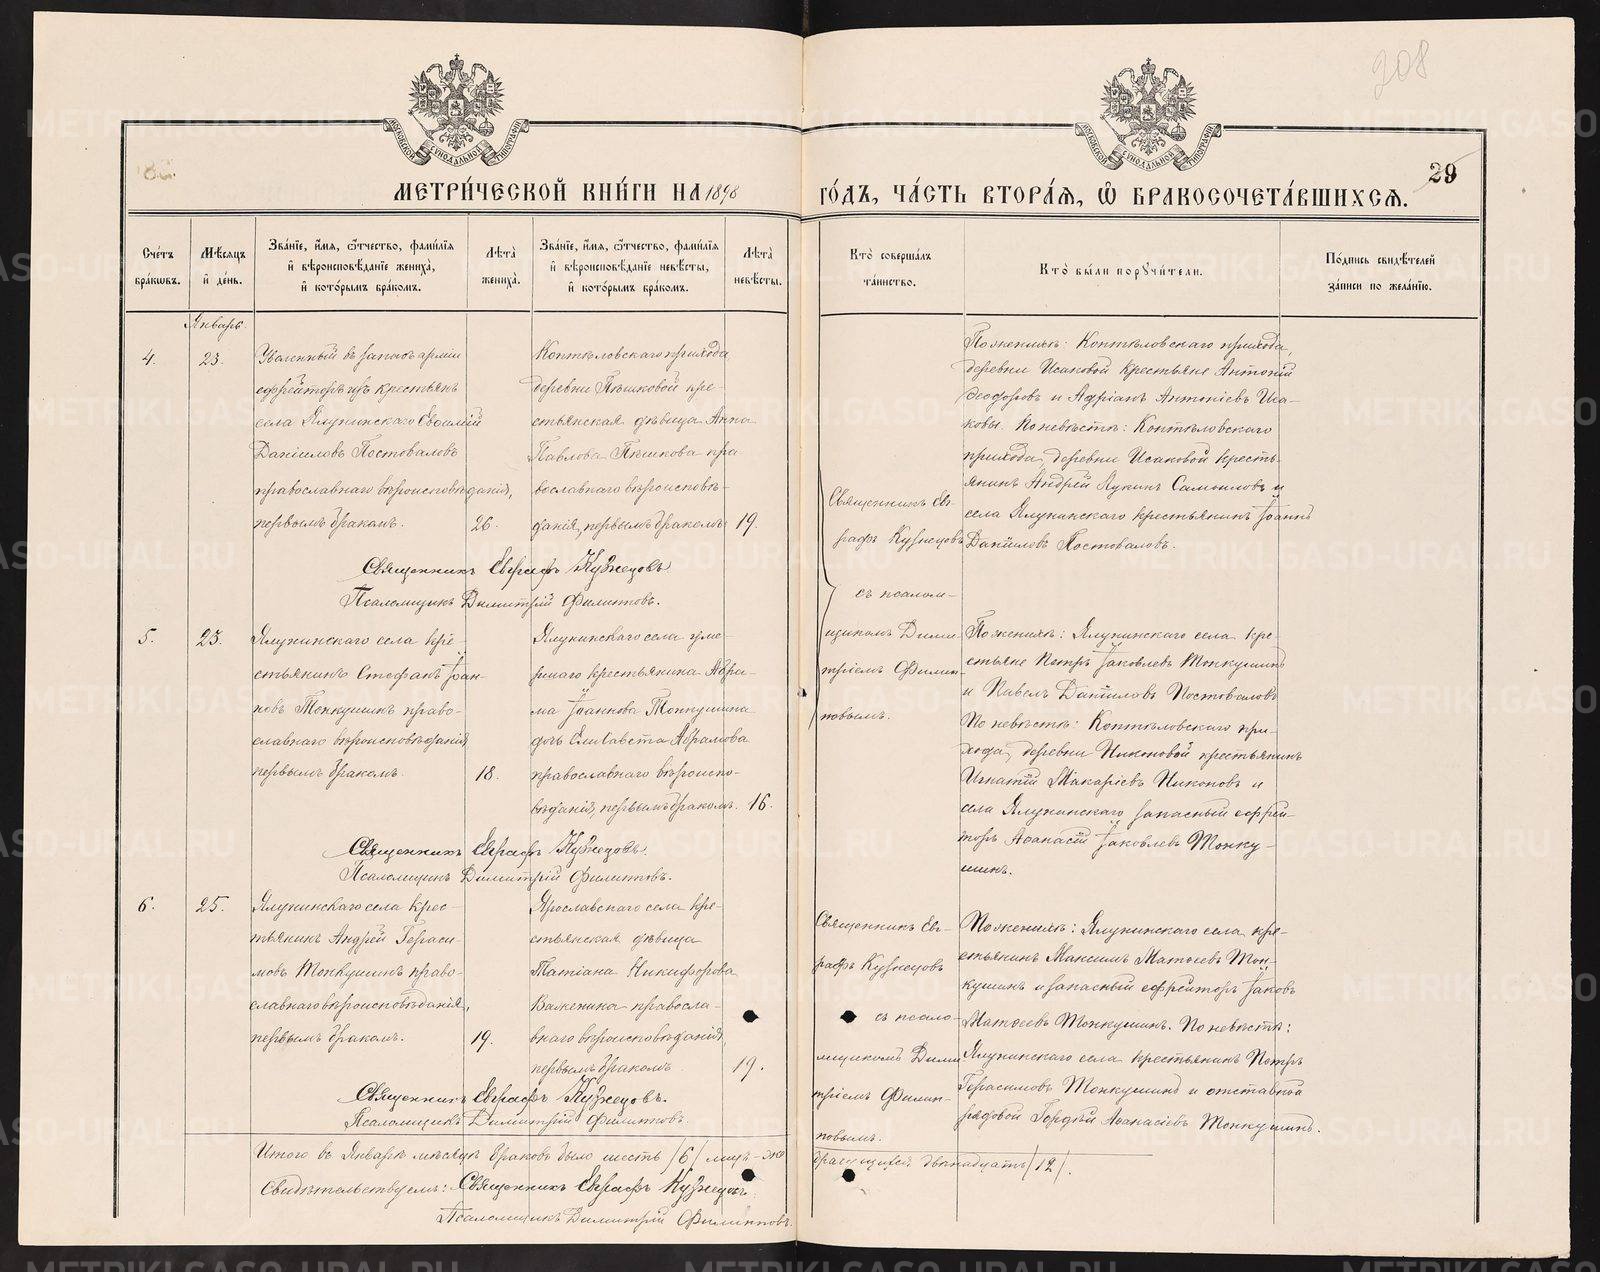 208
МОСКОВСКОЙ СѴНОДАЛЬНОЙ ТИПОГРАФІИ
МОСКОВСКОЙ СѴНОДАЛЬНОЙ ТИПОГРАФІИ
29
МЕТРИ́ЧЕСКОЙ КНИ́ГИ НА 1898
ГО́ДЪ, ЧА́СТЬ ВТОРА́Я, Ѡ҆ БРАКОСОЧЕТА́ВШИХСЯ.
Сче́тъ бра́ковъ.
Мѣ́сяцъ и҆ де́нь.
Зва́нїе, и҆́мя, ѻ҆́тчество, фами́лїя
и҆ вѣроисповѣ́данїе жениха̀,
и҆ кото́рымъ бра́комъ.
Лѣта̀ жениха̀.
Зва́нїе, и҆́мя, ѻ҆́тчество, фами́лїя
и҆ вѣроисповѣ́данїе невѣ́сты,
и҆ кото́рымъ бра́комъ.
Лѣта̀ невѣ́сты.
Кто̀ соверша́лъ
та́инство.
Кто̀ бы́ли порꙋчи́тели.
По́дпись свидѣ́телей
за́писи по жела́нїю.
Январь.
4.
23.
Уволенный въ запасъ арміи
ефрейторъ изъ крестьянъ
села Ялунинскаго
Даніиловъ Постоваловъ
православнаго вѣроисповѣданія,
первымъ бракомъ.
26.
Коптѣловскаго прихода
деревни Пѣшковой кре-
стьянская дѣвица Анна
Павлова Пѣшкова пра-
вославнаго вѣроисповѣ-
данія, первымъ бракомъ
19.
Священникъ Ев-
графъ Кузнецовъ
съ псалом-
щикомъ Дими-
тріемъ Филип-
повымъ.
По женихѣ: Коптѣловскаго прихода,
деревни Исаковой крестьяне Антоній
Ѳеодоровъ и Адріанъ Антоніевъ Иса-
ковы. По невѣстѣ: Коптѣловскаго
прихода, деревни Исаковой кресть-
янинъ Андрей Лукинъ Самоиловъ и
села Ялунинскаго крестьянинъ Іоаннъ
Даніиловъ Постоваловъ.
Священникъ Евграфъ Кузнецовъ.
Псаломщикъ Димитрій Филипповъ.
5.
23.
Ялунинскаго села кре-
стьянинъ Стефанъ Іоан-
новъ Тонкушинъ право-
славнаго вѣроисповѣданія
первымъ бракомъ.
18.
Ялунинскаго села уме-
ршаго крестьянина Авра-
ма Іоаннова Тонкушина
дочь Елисавета Абрамова
православнаго вѣроиспо-
вѣданія, первымъ бракомъ.
16.
По женихѣ: Ялунинскаго села кре-
стьяне Петръ Іаковлевъ Тонкушинъ
и Павелъ Даніиловъ Постоваловъ
По невѣстѣ: Коптѣловскаго при-
хода, деревни Никоновой крестьянинъ
Игнатій Макаріевъ Никоновъ и
села Ялунинскаго запасный ефрей-
торъ Аѳанасій Іаковлевъ Тонку-
шинъ.
Священникъ Евграфъ Кузнецовъ.
Псаломщикъ Димитрій Филипповъ.
6.
25.
Ялунинскаго села крес-
тьянинъ Андрей Гераси-
мовъ Тонкушинъ право-
славнаго вѣроисповѣданія,
первымъ бракомъ.
19.
Ярославскаго села кре-
стьянская дѣвица
Татіана Никифорова
Важенина правосла-
внаго вѣроисповѣданія,
первымъ бракомъ.
19.
Священникъ Ев-
графъ Кузнецовъ
съ псало-
мщикомъ Дими
тріемъ Филип-
повымъ.
По женихѣ: Ялунинскаго села кре-
стьянинъ Максимъ Матѳеевъ Тон-
кушинъ и запасный ефрейторъ Іаковъ
Матѳеевъ Тонкушинъ. По невѣстѣ:
Ялунинскаго села крестьянинъ Петръ
Герасимовъ Тонкушинъ и отставный
рядовой Гордѣй Аѳанасіевъ Тонкушинъ.
Священникъ Евграфъ Кузнецовъ.
Псаломщикъ Димитрій Филипповъ.
Итого въ Январѣ мѣсяцѣ браковъ было шесть /6/ лицъ-же
брачущихся двѣнадцать /12/.
Свидѣтельствуемъ: Священникъ Евграфъ Кузнецовъ
Псаломщикъ Димитрій Филипповъ.
METRIKI.GASO-URAL.RU